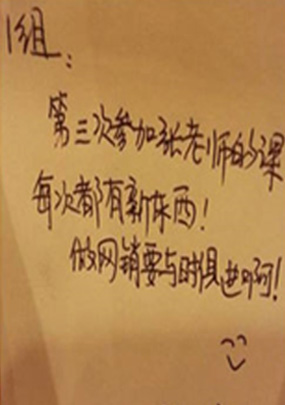 1组：
第三次参加张老师的课
每次都有新东西！
做网销要与时俱进啊！